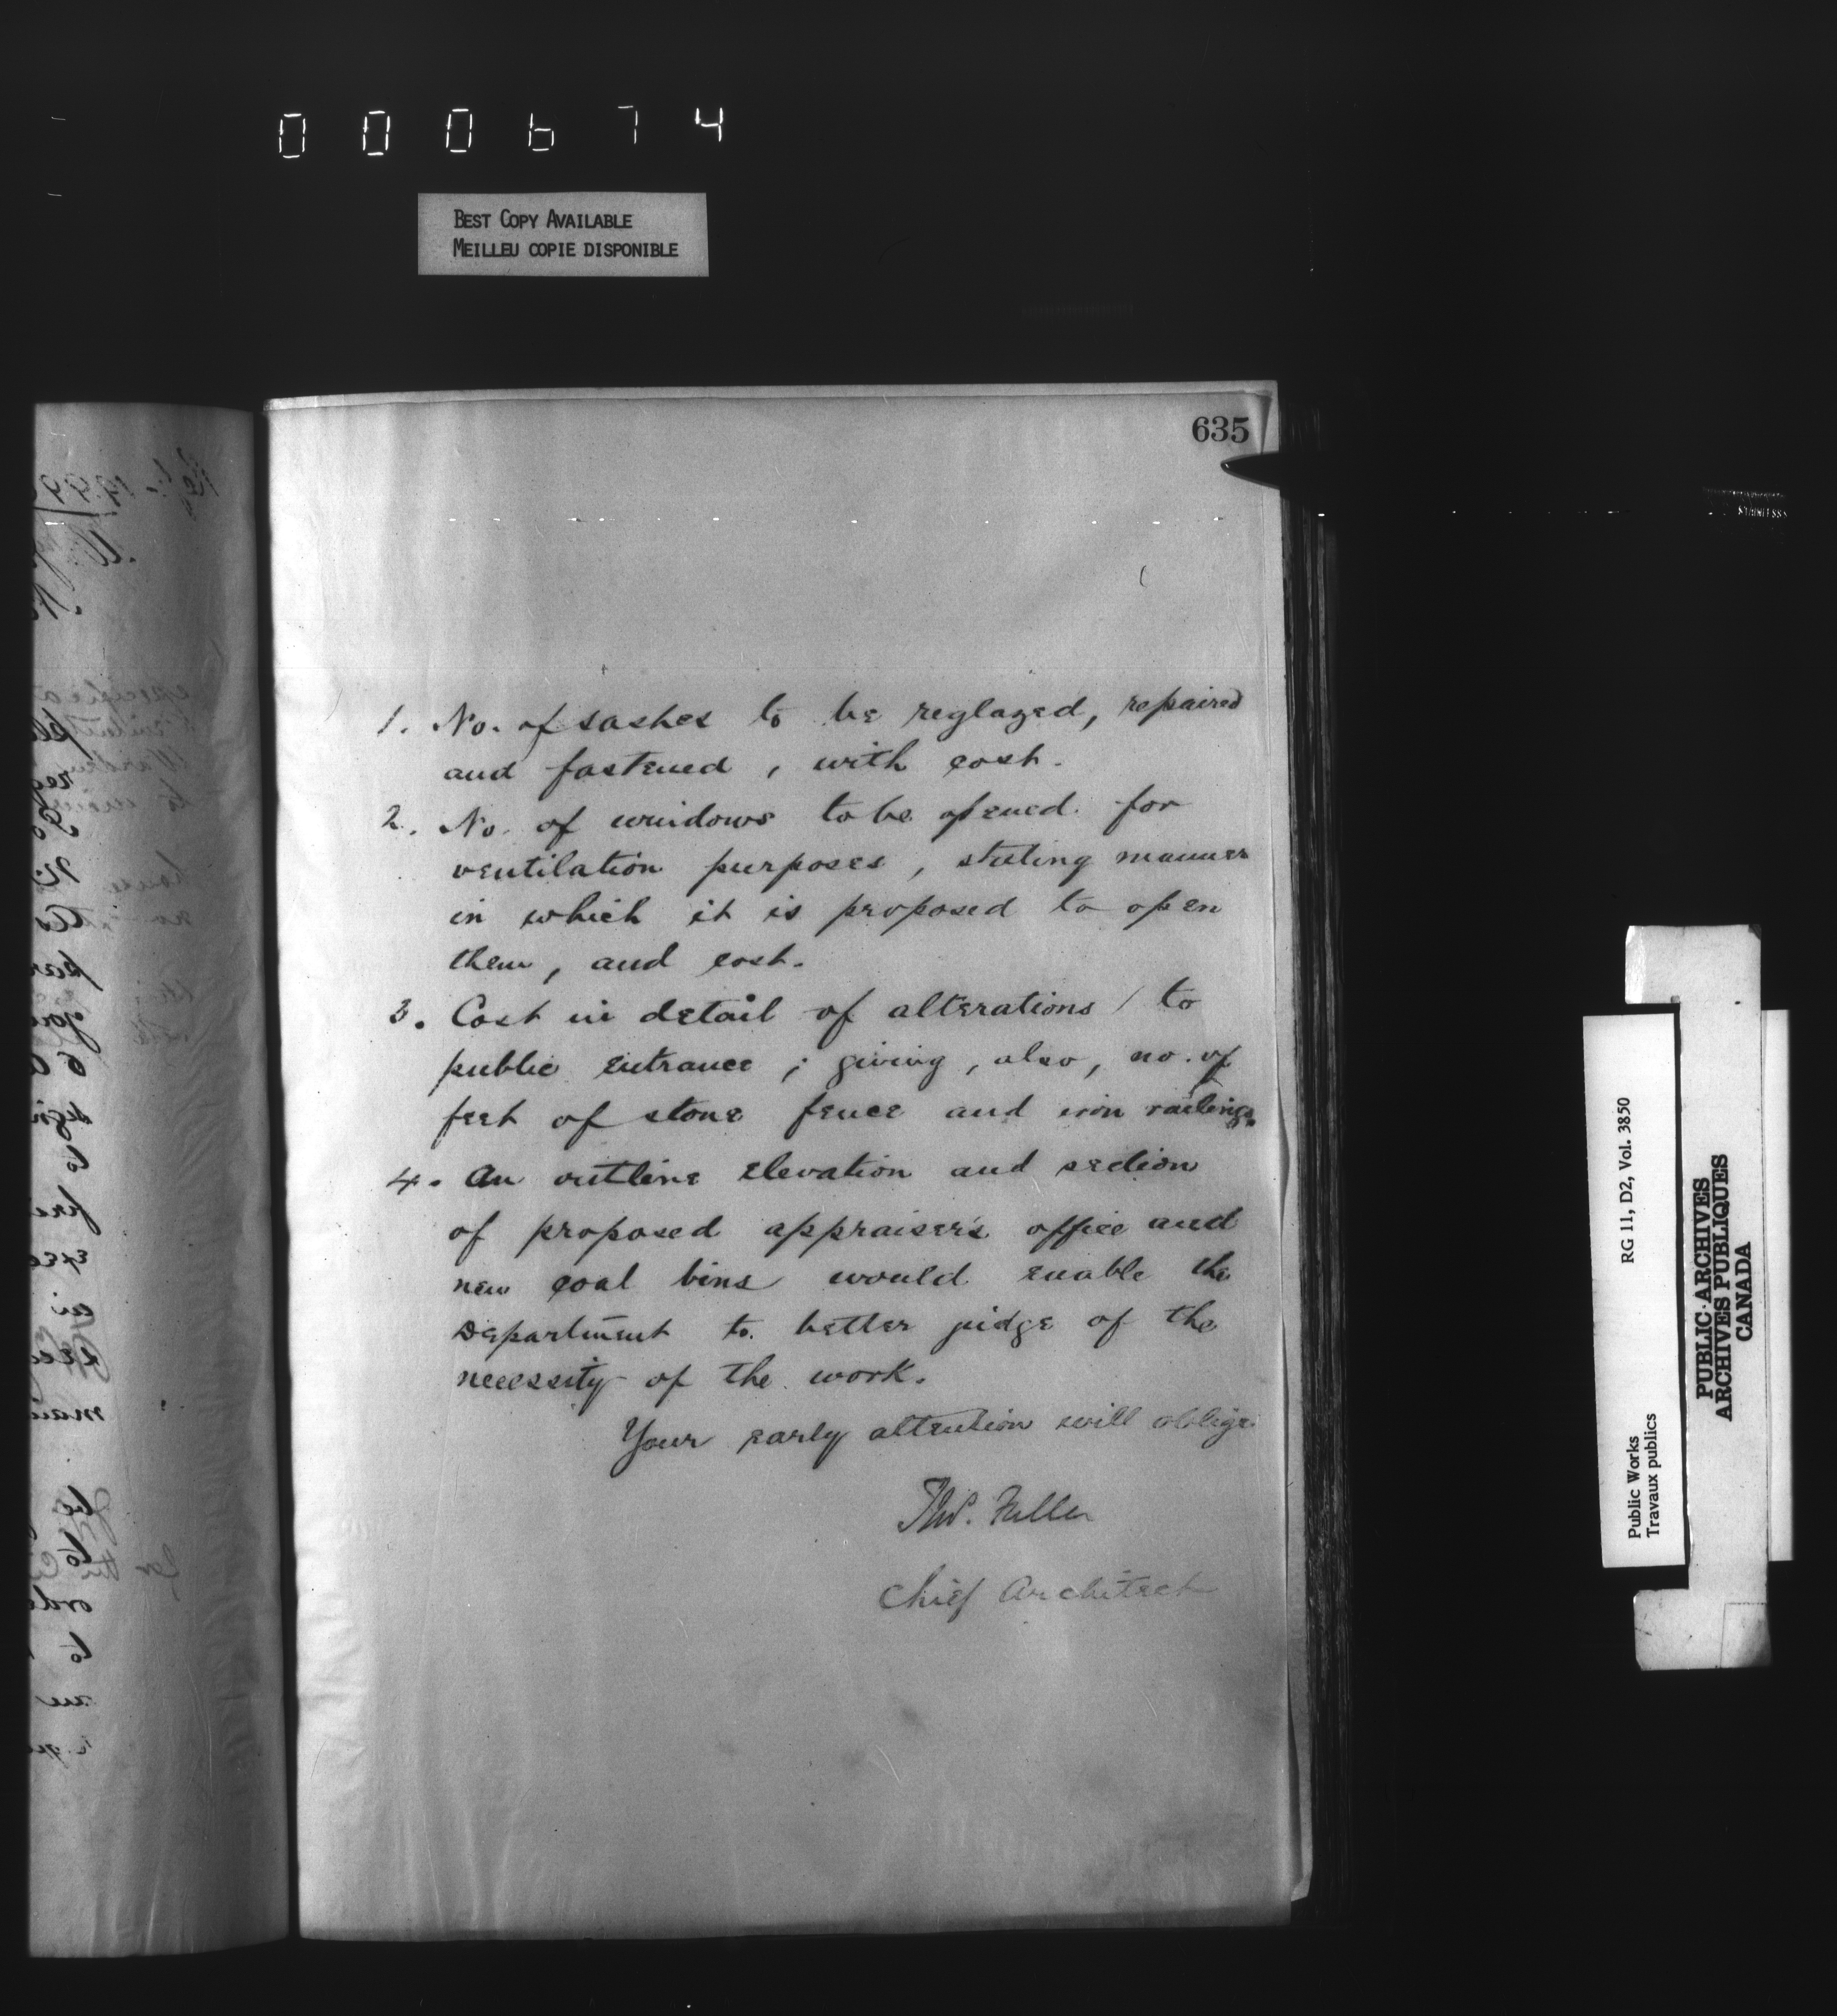 000674
BEST COPY AVAILABLE
MEILLEU COPIE DISPONIBLE
635
1. No. of sashes to be reglazed, repaired
and fastened, with cost.
2. No. of windows to be opened for
ventilation purposes, stating manner
in which it is proposed to open
them, and cost.
3. Cost in detail of alterations to
public entrance; giving, also, no. of
feet of stone fence and iron railings.
4. An outline elevation and section
of proposed appraiser's office and
new coal bins would enable the
Department to better judge of the
necessity of the work.
Your early attention will oblige
Thos. Fuller
Chief Architect
Public Works
Travaux publics
RG 11, D2, Vol. 3850
PUBLIC ARCHIVES
ARCHIVES PUBLIQUES
CANADA